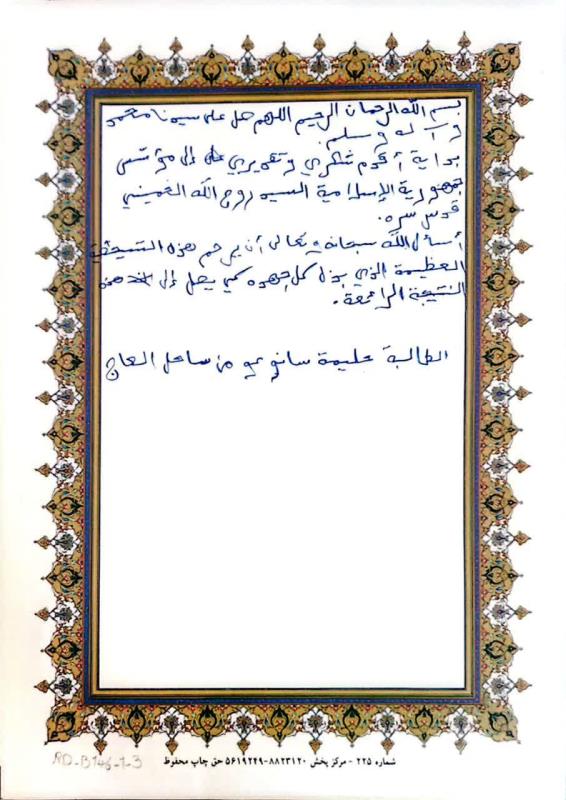 بسم الله الرحمان الرحيم اللهم صل على سيدنا محمد
وآله وسلم.
بداية أقدم شكري وتقديري إلى مؤسس
جمهورية الإسلامية السيد روح الله الخميني
قدس سره.
أسأل الله سبحانه وتعالى أن يرحم هذه الشخصية
العظيمة الذي بذل كل جهده كي يصل إلى هذه
النتيجة الرائعة.
الطالبة حليمة سانوغو من ساحل العاج
شماره ٢٢٥ - مركز پخش ٨٨٢٣١٢٠-٥٦١٩٢٤٩ حق چاپ محفوظ
RD-B146-1-3